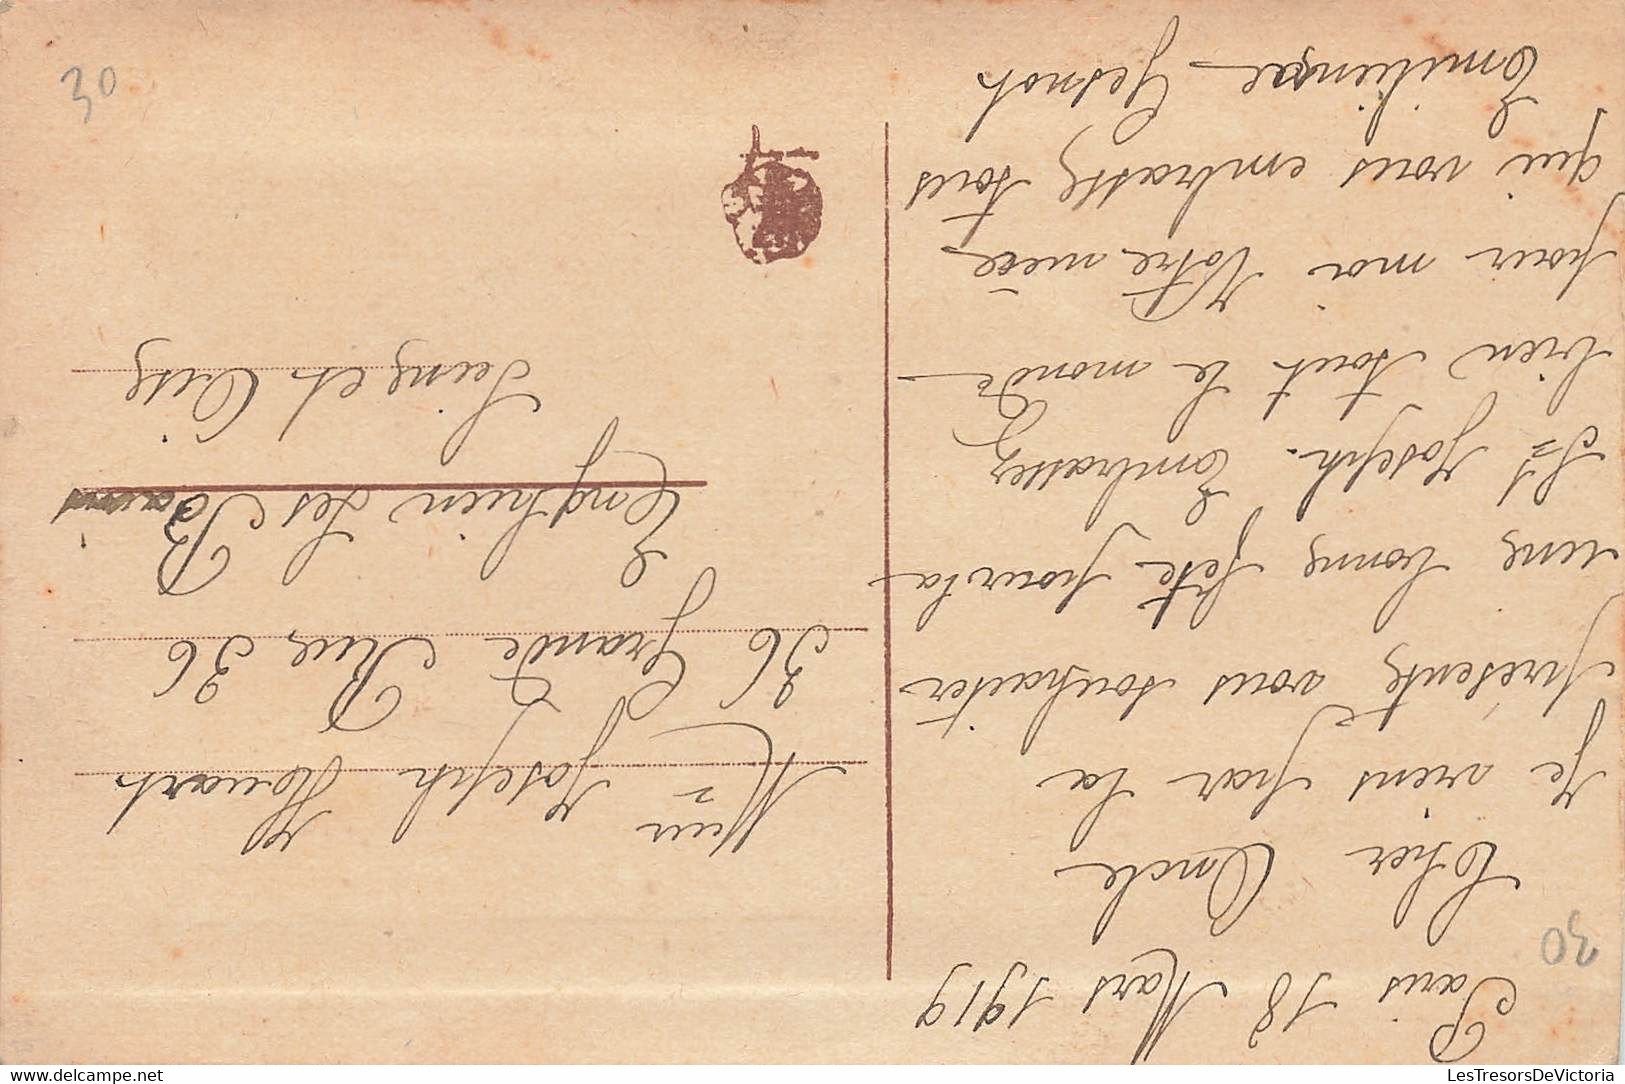 Paris 18 Mars 1919
Cher Oncle
Je viens par la
présente vous souhaiter
une bonne fête pour la
St Joseph. Embrassez
bien tout le monde
pour moi Votre nièce
qui vous embrasse tous
Emilienne
Mr Joseph
36 Grande Rue 36
Enghien les Bains
Seine et Oise
30
30
LesTresorsDeVictoria
LesTresorsDeVictoria.delcampe.net